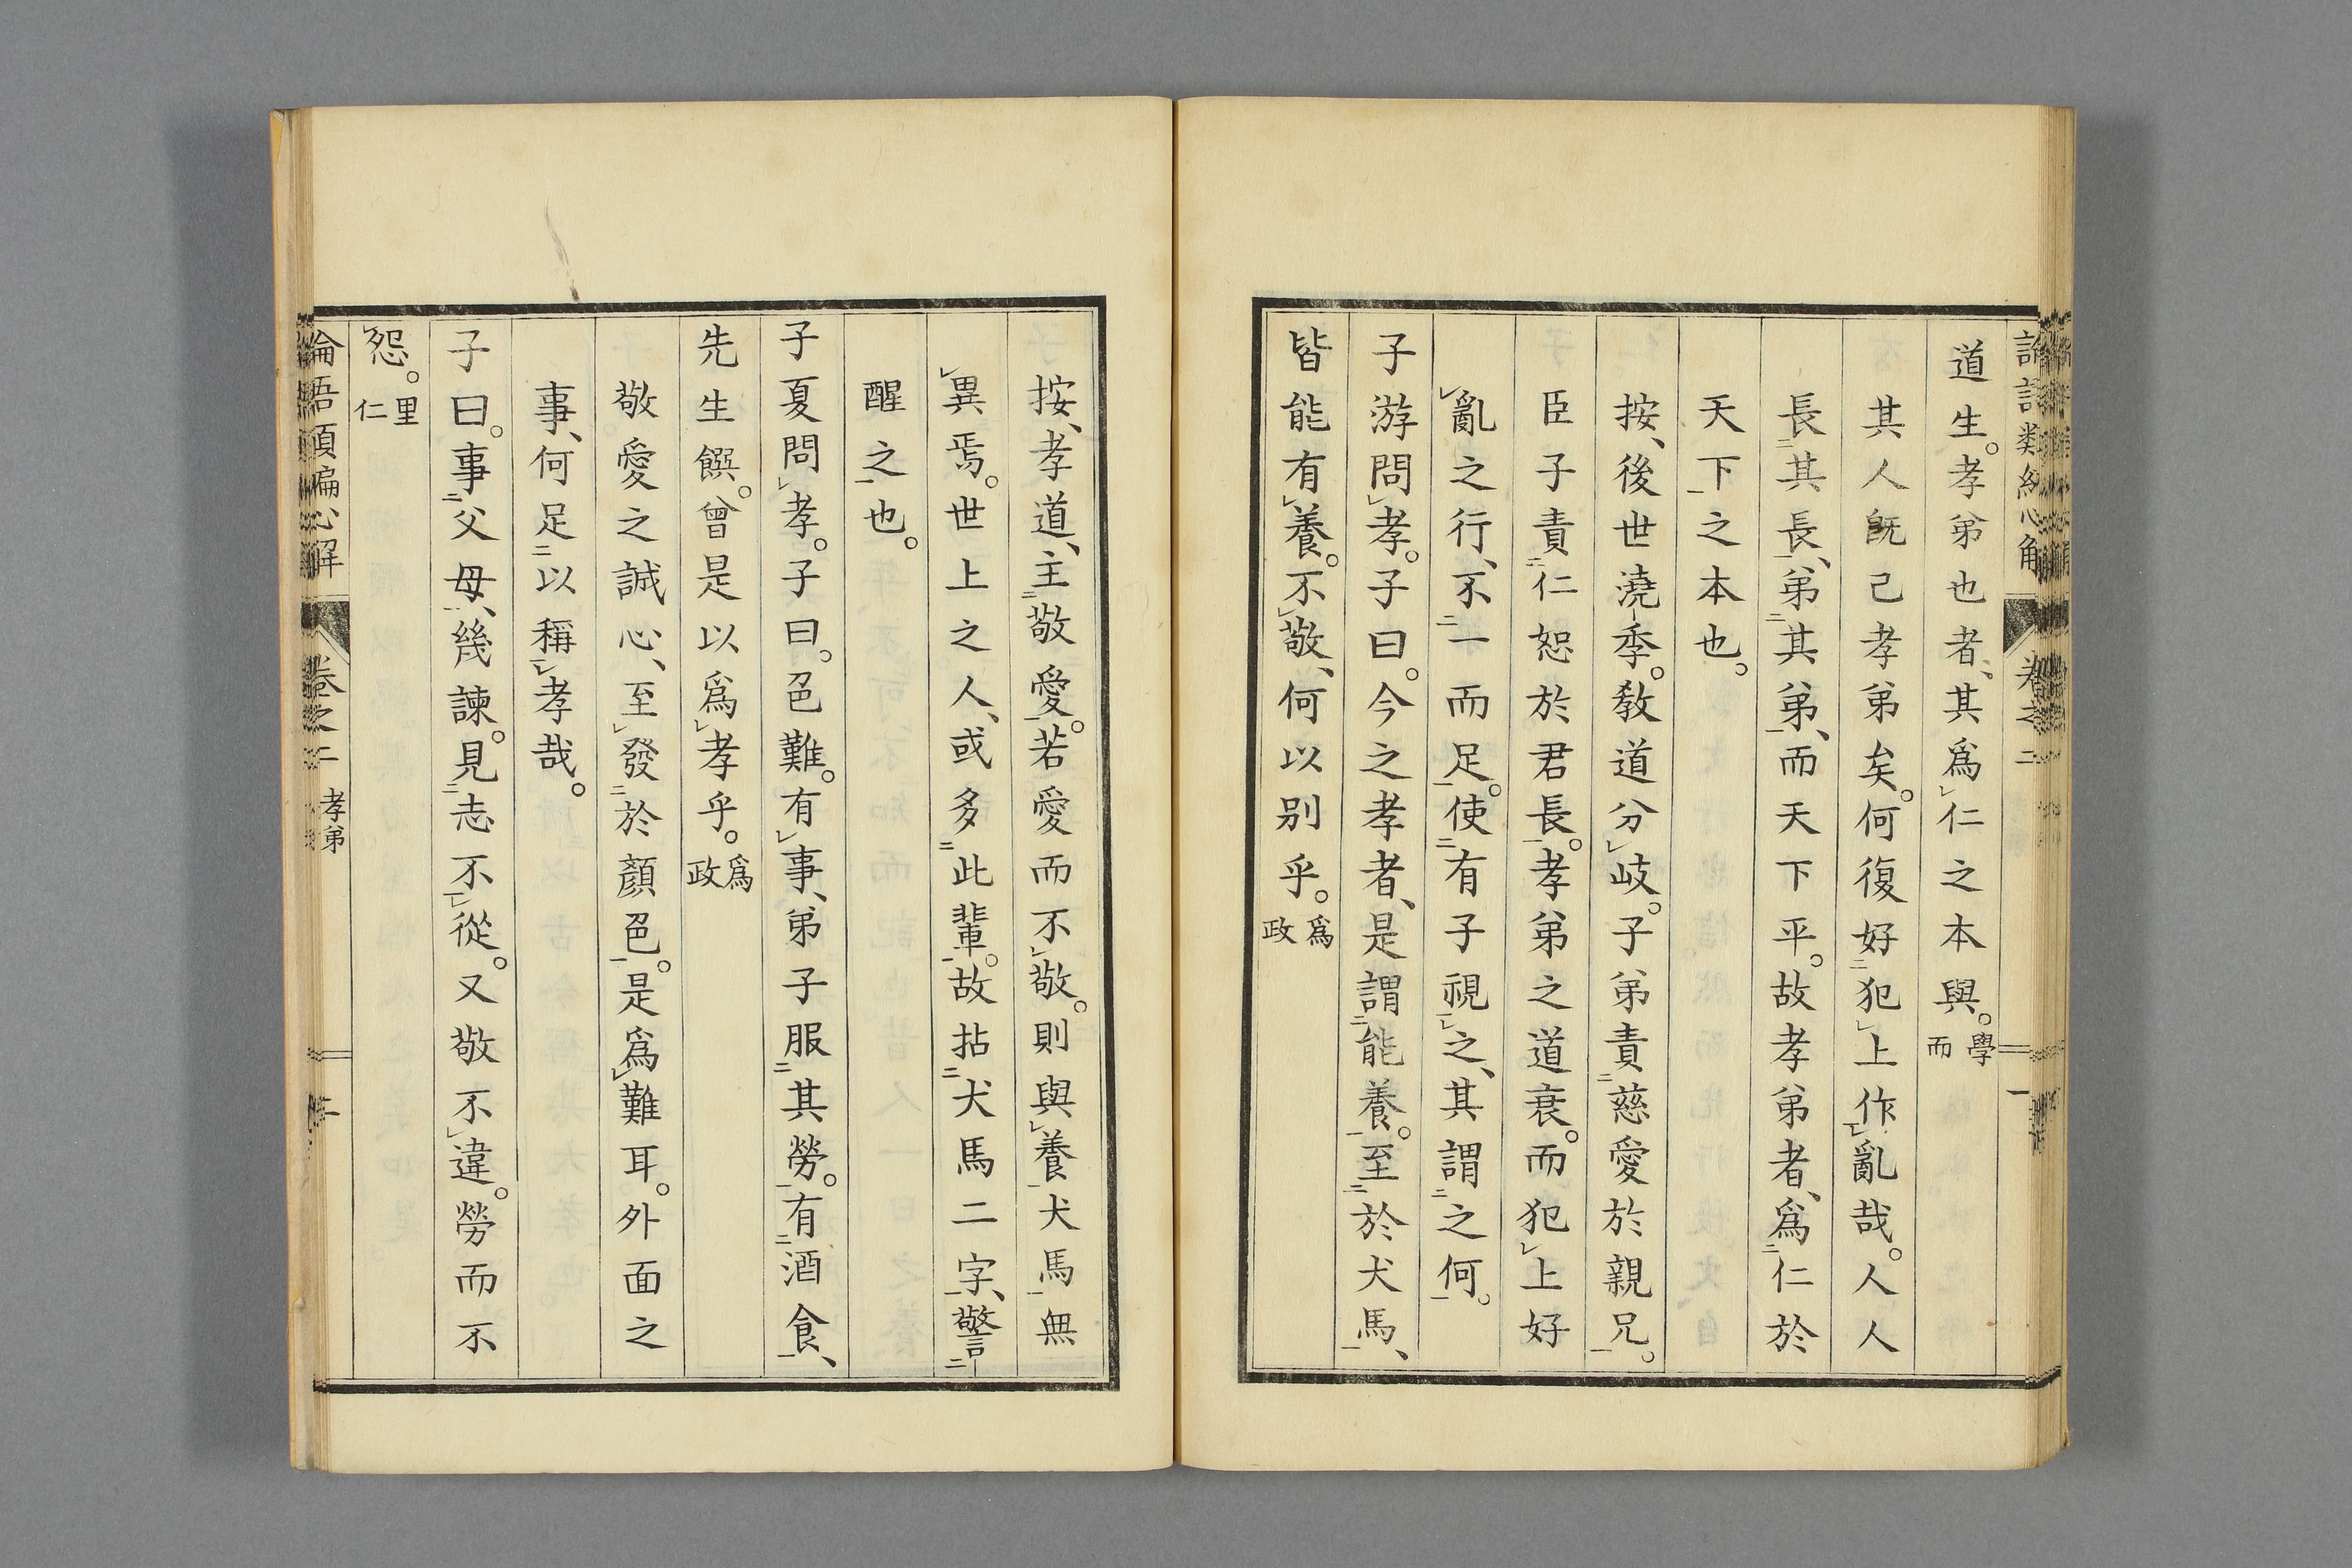 道生。孝弟也者、其爲仁之本與。學而
其人既己孝弟矣。何復好犯上作亂哉。人人
長其長、弟其弟、而天下平。故孝弟者、爲仁於
天下之本也。
按、後世澆季。敎道分岐。子弟責慈愛於親兄。
臣子責仁恕於君長。孝弟之道衰。而犯上好
亂之行、不一而足。使有子視之、其謂之何。
子游問孝。子曰。今之孝者、是謂能養。至於犬馬、
皆能有養。不敬、何以別乎。爲政
按、孝道、主敬愛。若愛而不敬。則與養犬馬無
異焉。世上之人、或多此輩。故拈犬馬二字、警
醒之也。
子夏問孝。子曰。色難。有事、弟子服其勞。有酒食、
先生饌。曾是以爲孝乎。爲政
敬愛之誠心、至發於顏色。是爲難耳。外面之
事、何足以稱孝哉。
子曰。事父母、幾諫。見志不從。又敬不違。勞而不
怨。里仁
卷之二 孝弟